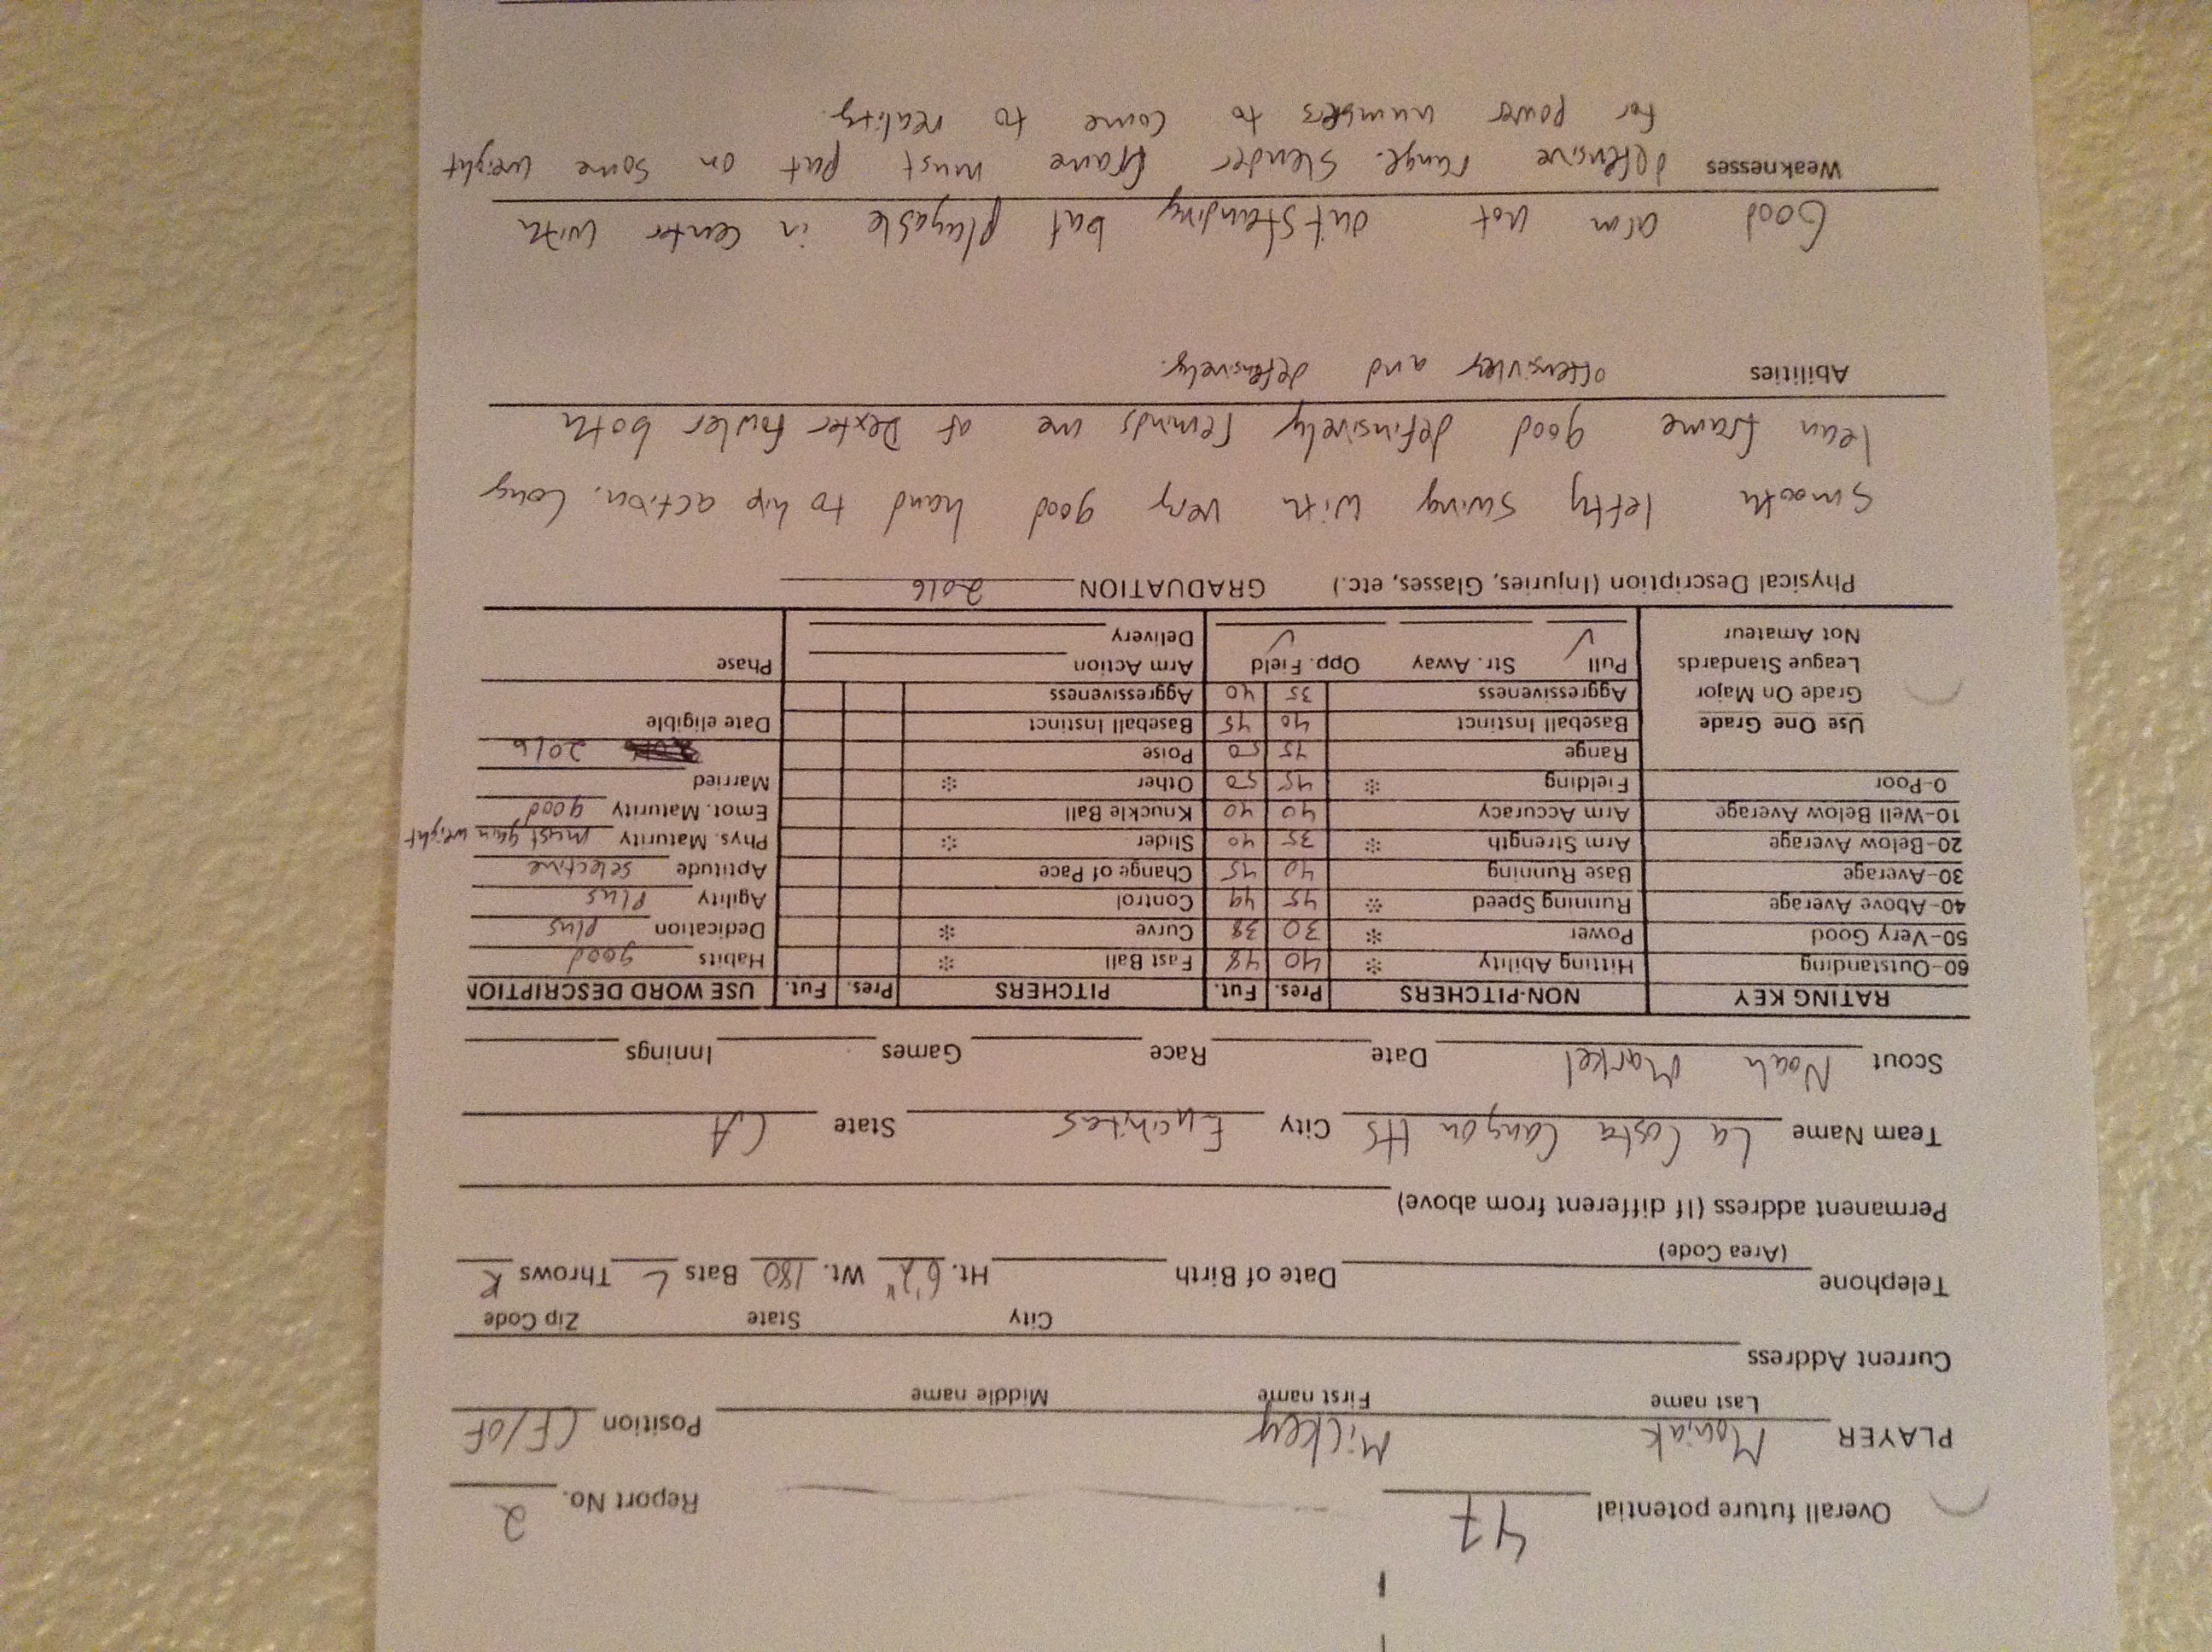 Overall future potential 47 Report No. 2
PLAYER Moniak Mickey Position CF/OF
Last name First name Middle name
Current Address
City State Zip Code
Telephone Date of Birth Ht. 6'2" Wt. 180 Bats L Throws R
(Area Code)
Permanent address (If different from above)
Team Name La Costa Canyon HS City Encinitas State CA
Scout Noah Markel Date Race Games Innings
RATING KEY NON-PITCHERS Pres. Fut. PITCHERS Pres. Fut. USE WORD DESCRIPTION
60-Outstanding Hitting Ability * 40 48 Fast Ball * Habits good
50-Very Good Power * 30 38 Curve * Dedication plus
40-Above Average Running Speed * 45 49 Control Agility plus
30-Average Base Running 40 45 Change of Pace Aptitude selective
20-Below Average Arm Strength * 35 40 Slider * Phys. Maturity must gain weight
10-Well Below Average Arm Accuracy 40 40 Knuckle Ball Emot. Maturity good
0-Poor Fielding * 45 50 Other * Married
Range 45 50 Poise 2016
Use One Grade Baseball Instinct 40 45 Baseball Instinct Date eligible
Grade On Major Aggressiveness 35 40 Aggressiveness
League Standards Pull Str. Away Opp. Field Arm Action Phase
Not Amateur ✓ ✓ Delivery
Physical Description (Injuries, Glasses, etc.) GRADUATION 2016
Smooth lefty swing with very good hand to hip action. Long
lean frame good definsively reminds me of Dexter Fowler both
Abilities offensivley and defensively.
Good arm not outstanding but playable in center with
Weaknesses defensive range. Slender frame must put on some weight
for power numbers to come to reality.